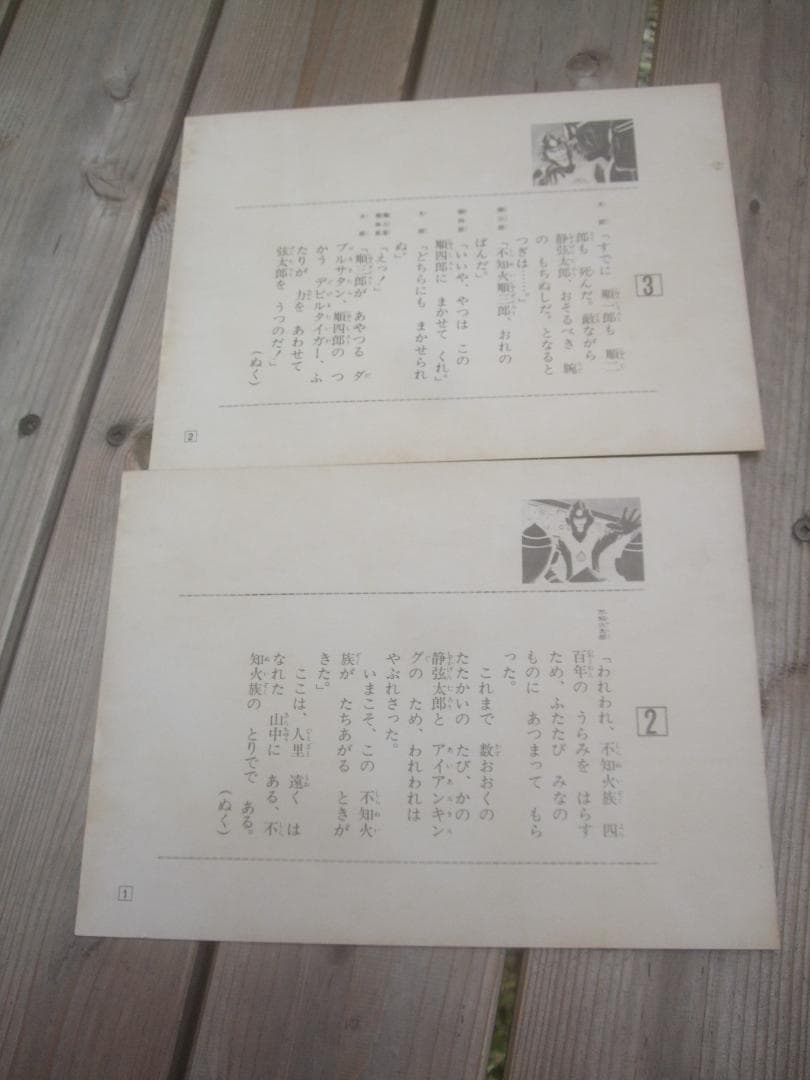 3
「すでに 順一郎も 順二
郎も 死んだ。敵ながら
静弦太郎、おそるべき 腕
の もちぬしだ。となると
つぎは……。」
「不知火順三郎、おれの
ばんだ。」
「いいや、やつは この
順四郎に まかせて くれ。」
「どちらにも まかせられ
ぬ。」
「えっ！」
「順三郎が あやつる ダ
ブルサタン、順四郎の つ
かう デビルタイガー、ふ
たりが 力を あわせて
弦太郎を うつのだ！」
(ぬく)
2
2
「われわれ、不知火族 四
百年の うらみを はらす
ため、ふたたび みなの
ものに あつまって もら
った。
これまで 数おおくの
たたかいの たび、かの
静弦太郎と アイアンキン
グの ため、われわれは
やぶれさった。
いまこそ、この 不知火
族が たちあがる ときが
きた。」
ここは、人里 遠く は
なれた 山中に ある、不
知火族の とりでで ある。
(ぬく)
1